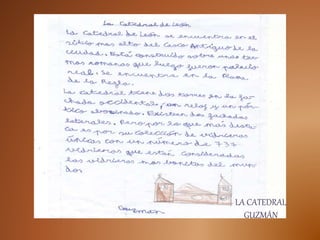 La Catedral de León
La Catedral de León se encuentra en el
sitio mas alto del Casco Antiguo de la
ciudad. Está construido sobre unas ter-
mas romanas que luego fueron palacio
real. Se encuentra en la Plaza
de la Regla.
La catedral tiene dos torres en la fa-
chada occidental, un reloj y un pór-
tico abocinado. Existen dos fachadas
laterales. Pero por lo que mas desta-
ca es por su colección de vidrieras
únicas con un número de 737
vidrieras que está consideradas
las vidrieras mas bonitas del mun-
do.
Guzmán
LA CATEDRAL
GUZMÁN